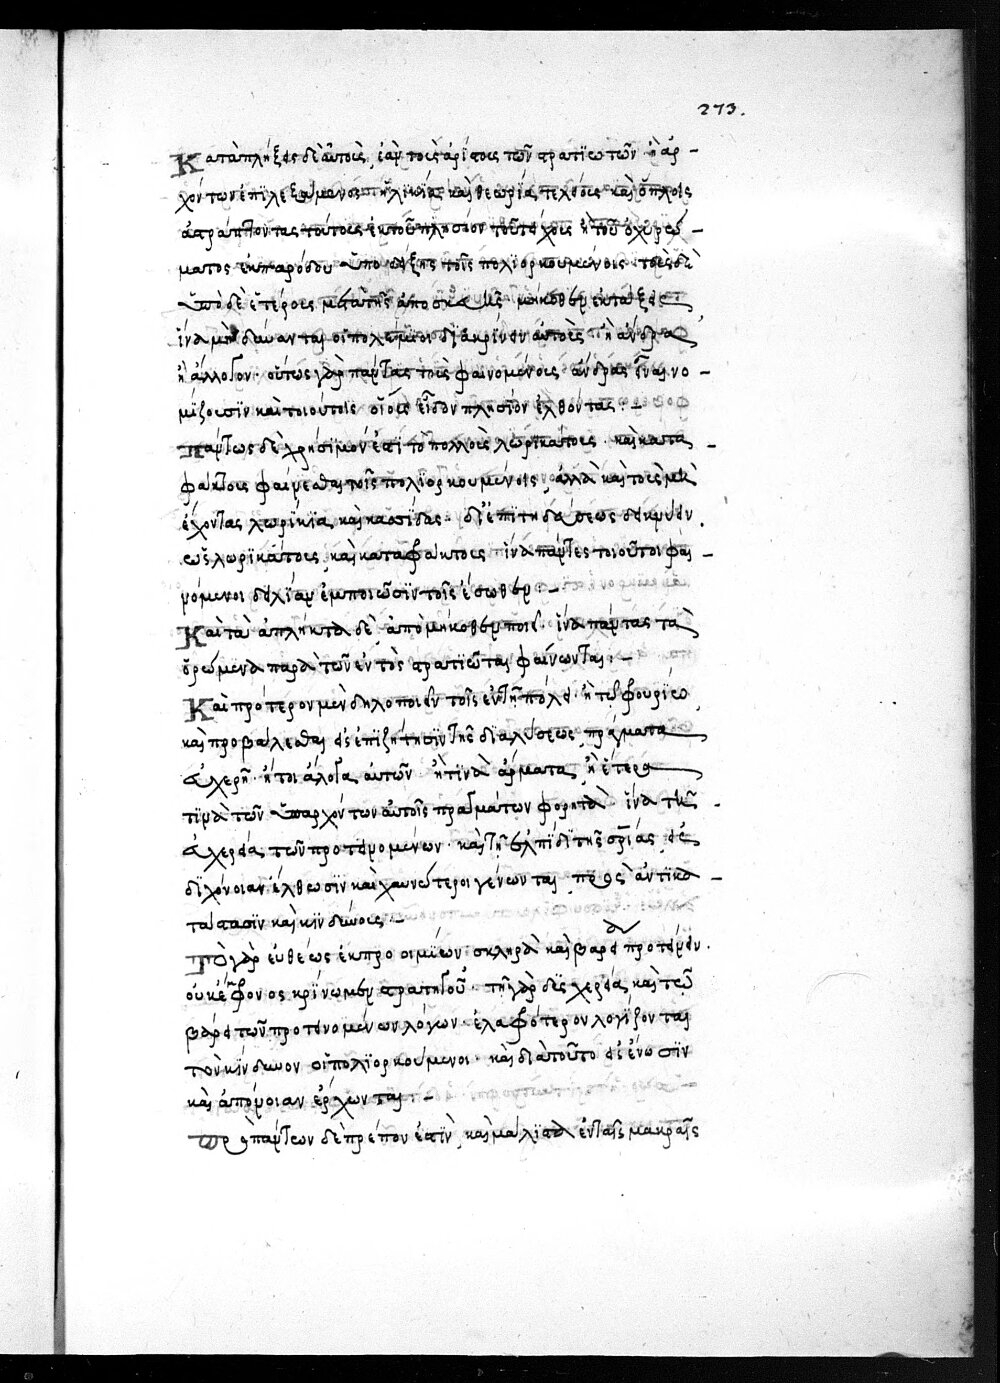 273.
Καταπλήξεις δὲ αὐτοὺς, ἐὰν τοὺς ἀρίστους τῶν στρατιωτῶν ἢ ἀρ-
χόντων ἐπιλεξάμενος ἡλικίᾳ καὶ θεωρίᾳ τελείους καὶ ὅπλοις
ἀστράπτοντας τούτους ἐκ τοῦ πλησίον τοῦ τείχους ἢ τοῦ ὀχυρώ-
ματος ἐκ παρόδου ὑποδείξῃς τοῖς πολιορκουμένοις· τοὺς δὲ
δὲ ἑτέρους μετὰ τῆς ἀποσκευῆς μήκοθεν ἐκτάξεις
ἵνα μὴ δύνανται οἱ πολέμιοι διακρίνειν αὐτοὺς ἢ ἄνδρα
ἢ ἄλογον· οὕτως γὰρ πάντας τοὺς φαινομένους ἄνδρας εἶναι νο-
μίζουσιν καὶ τοιούτους οἵους εἶδον πλησίον ἐλθόντας:-
Πάντως δὲ χρήσιμόν ἐστι τὸ πολλοὺς λωρικάτους καὶ κατα-
φράκτους φαίνεσθαι τοῖς πολιορκουμένοις, ἀλλὰ καὶ τοὺς μὴ
ἔχοντας λωρίκια καὶ κασσίδας δι' ἐπιτηδεύσεως δεικνύειν.
ὡς λωρικάτους καὶ καταφράκτους ἵνα πάντες τοιοῦτοι φαι-
νόμενοι δειλίαν ἐμποιῶσιν τοῖς ἔσωθεν:-
Καὶ τὰ ἄπληκτα δὲ, ἀπὸ μήκοθεν ποιεῖν ἵνα πάντας τὰ
ὁρώμενα παρὰ τῶν ἐντὸς στρατιῶται φαίνωνται:-
Καὶ πρότερον μὲν δηλοποιεῖν τοῖς ἐν τῇ πόλει ἢ τῷ φρουρίῳ
καὶ προβάλεσθαι εἰς ἐπιζήτησιν τῆς διαλύσεως πράγματα
εὐχερῆ ἤτοι ἄλογα αὐτῶν ἤ τινα ἄρματα, ἢ ἕτερα
τινὰ τῶν ὑπαρχόντων αὐτοῖς πραγμάτων φορητὰ ἵνα τῆς
εὐχερείας τῶν προτεινομένων καὶ τῇ ἐλπίδι τῆς σρίας εἰς
διχόνοιαν ἔλθωσιν καὶ χαυνότεροι γένωνται πρὸς ἀντικα-
τάστασιν καὶ κινδύνους:-
Τὸ γὰρ εὐθέως ἐκ προοιμίων σκληρὰ καὶ βαρέα προτείνειν.
οὐκ ἔμφρονος κρίνωμεν στρατηγοῦ· τῇ γὰρ δυσχερείᾳ καὶ τῷ
βάρει τῶν προτεινομένων λόγων ἐλαφρότερον λογίζονται
τὸν κίνδυνον οἱ πολιορκούμενοι καὶ διὰ τοῦτο εἰς ἕνωσιν
καὶ ἀπόνοιαν ἔρχωνται:-
Πρὸ πάντων δὲ πρέπον ἐστὶν, καὶ μάλιστα ἐν ταῖς μακραῖς